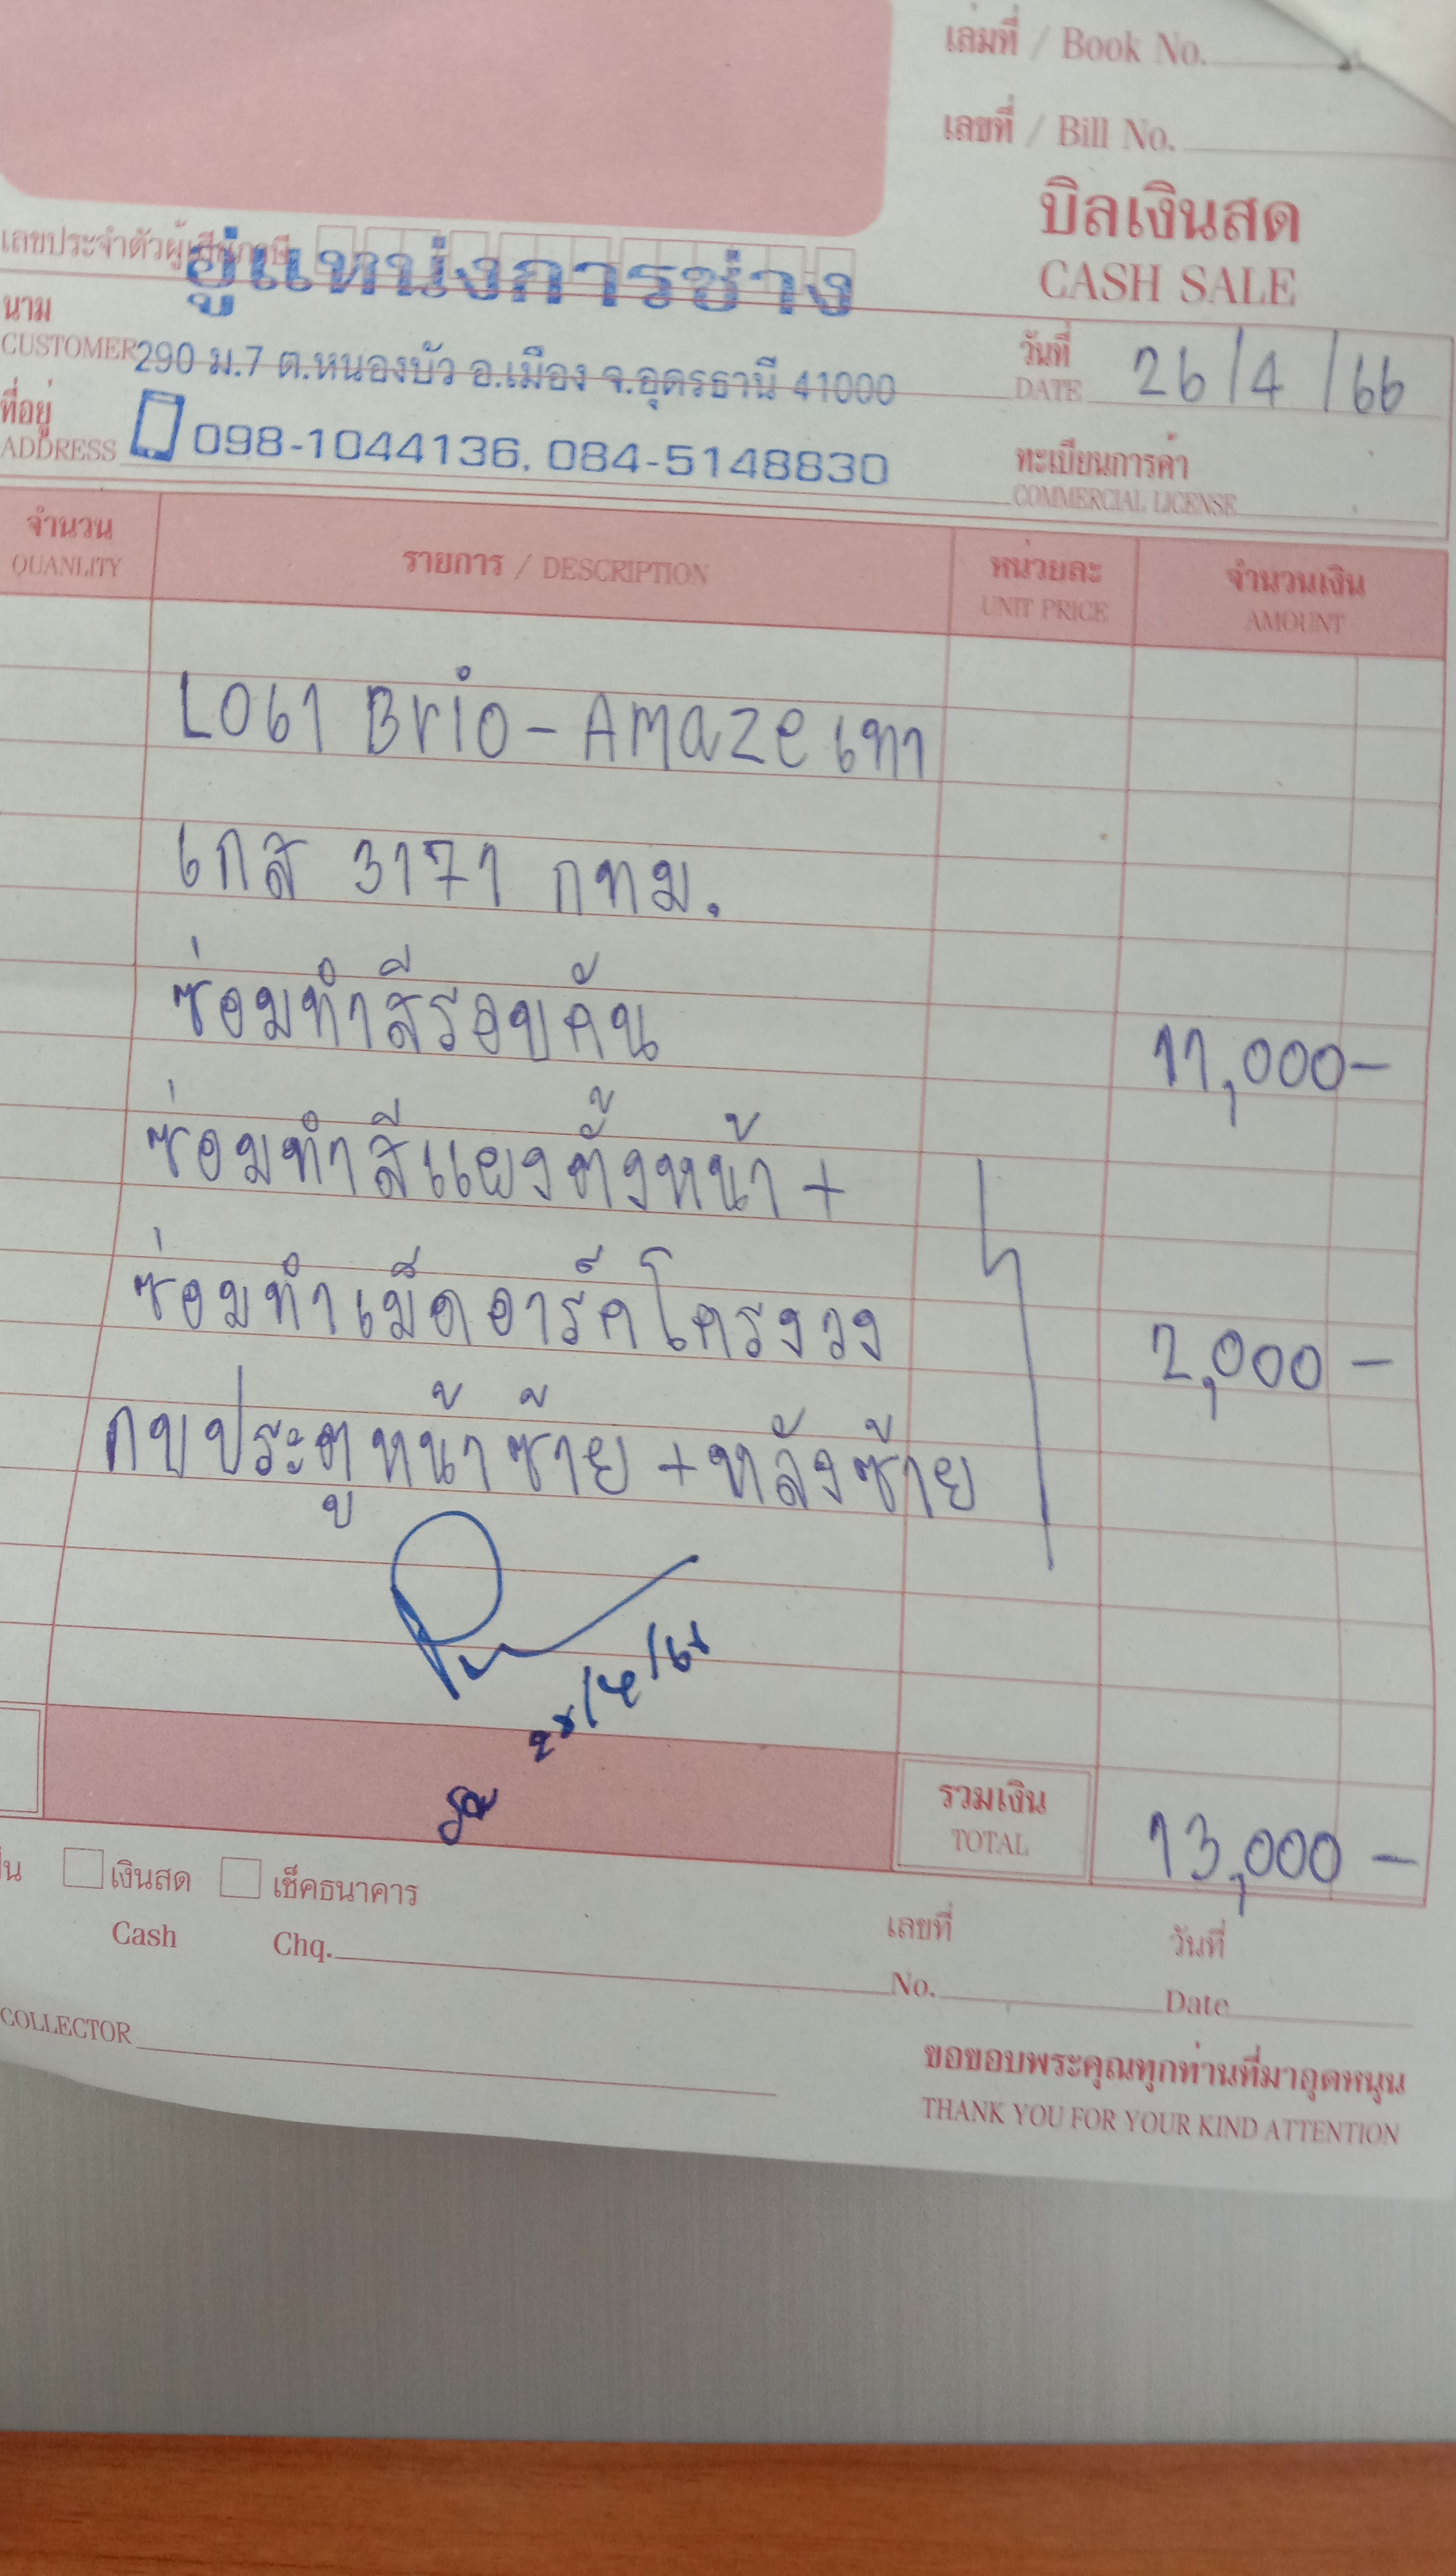 เล่มที่ / Book No.
เลขที่ / Bill No.
บิลเงินสด
CASH SALE
เลขประจำตัวผู้เสียภาษี
อู่แหน่งการช่าง
นาม
CUSTOMER
290 ม.7 ต.หนองบัว อ.เมือง จ.อุดรธานี 41000
วันที่
DATE
26/4/66
ที่อยู่
ADDRESS
098-1044136, 084-5148830
ทะเบียนการค้า
COMMERCIAL LICENSE
จำนวน
QUANLITY
รายการ / DESCRIPTION
หน่วยละ
UNIT PRICE
จำนวนเงิน
AMOUNT
L061 Brio-Amaze เทา
เกส 3171 กทม.
ซ่อมทำสีรอบคัน 11,000-
ซ่อมทำสีแผงตั้งหน้า +
ซ่อมทำเม็ดอาร์คโครงวง 2,000-
กบประตูหน้าซ้าย + หลังซ้าย
รวมเงิน
TOTAL
13,000-
เงินสด
Cash
เช็คธนาคาร
Chq.
เลขที่
No.
วันที่
Date
COLLECTOR
ขอขอบพระคุณทุกท่านที่มาอุดหนุน
THANK YOU FOR YOUR KIND ATTENTION